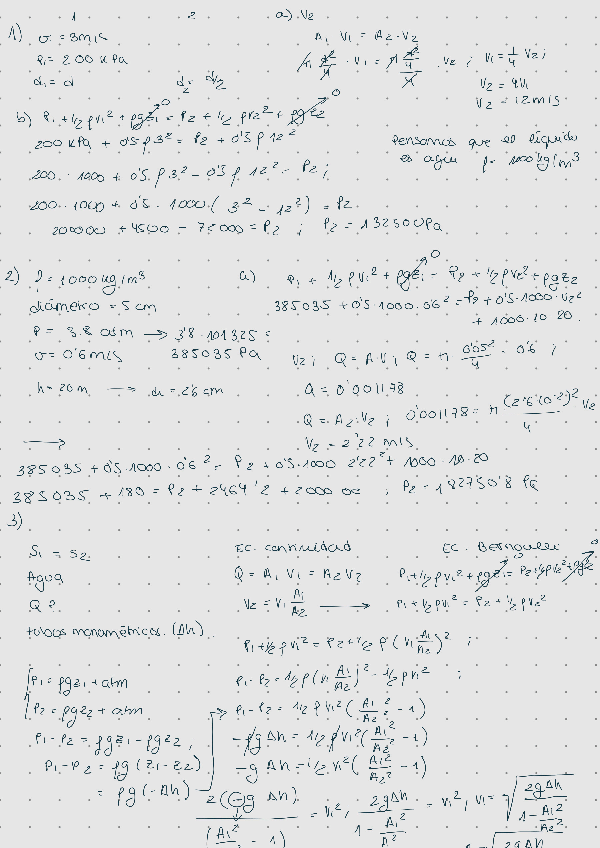 1 2 a) V2
1) v1 = 3 m/s A1 V1 = A2 · V2
P1 = 200 KPa V1 = 1/4 V2 ;
d1 = d d2 = d/2 V2 = 4V1
V2 = 12 m/s
b) P1 + 1/2 ρV1² + ρgz1 = P2 + 1/2 ρV2² + ρgz2
200 KPa + 0'5 ρ 3² = P2 + 0'5 ρ 12² Pensamos que el líquido
es agua ρ = 1000 kg/m³
200 · 1000 + 0'5 · ρ 3² - 0'5 ρ 12² = P2 ;
200 · 1000 + 0'5 · 1000 · (3² - 12²) = P2
200000 + 4500 - 72000 = P2 ; P2 = 132500 Pa
2) ρ = 1000 kg/m³ a) P1 + 1/2 ρV1² + ρgz1 = P2 + 1/2 ρV2² + ρgz2
diámetro = 5 cm 385035 + 0'5 · 1000 · 0'6² = P2 + 0'5 · 1000 · V2²
P = 3.8 atm → 3'8 · 101325 = + 1000 · 10 · 20.
v = 0'6 m/s 385035 Pa V2 ; Q = A · V ; Q = π 0'05²/4 · 0'6 ;
h = 20 m → d2 = 2'6 cm Q = 0'001178
Q = A2 · V2 ; 0'001178 = π (2'6·10^-2)²/4 V2
→ V2 = 2'22 m/s
385035 + 0'5 · 1000 · 0'6² = P2 + 0'5 · 1000 · 2'22² + 1000 · 10 · 20
385035 + 180 = P2 + 2464'2 + 200000 ; P2 = 182750'8 Pa
3)
S1 = S2 EC. continuidad EC. Bernoulli
Agua Q = A1 V1 = A2 V2 P1 + 1/2 ρV1² + ρgz1 = P2 + 1/2 ρV2² + ρgz2
Q ? V2 = V1 A1/A2 → P1 + 1/2 ρV1² = P2 + 1/2 ρV2²
tubos manométricos (Δh) P1 + 1/2 ρV1² = P2 + 1/2 ρ (V1 A1/A2)² ;
P1 = ρgz1 + atm P1 - P2 = 1/2 ρ (V1 A1/A2)² - 1/2 ρV1² ;
P2 = ρgz2 + atm P1 - P2 = 1/2 ρV1² (A1²/A2² - 1)
P1 - P2 = ρgz1 - ρgz2 , -ρg Δh = 1/2 ρV1² (A1²/A2² - 1)
P1 - P2 = ρg (z1 - z2) -g Δh = 1/2 V1² (A1²/A2² - 1)
= ρg (-Δh) 2(-g Δh)/(A1² - 1) = V1² , 2gΔh/(1 - A1²/A2²) = V1² , V1 = √(2gΔh/(1 - A1²/A2²))
2gΔh